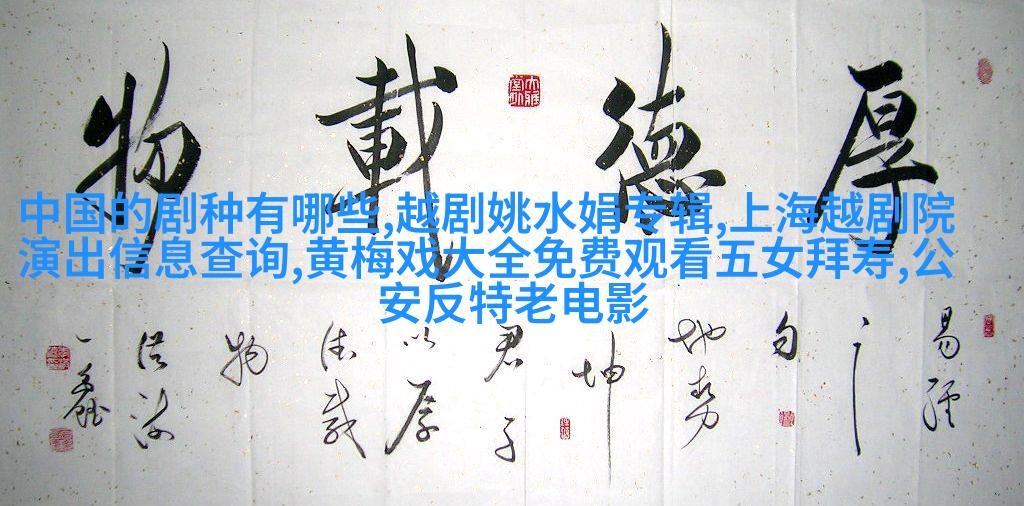 厚德載物
中国的剧种有哪些,越剧姚水娟专辑,上海越剧院
演出信息查询,黄梅戏大全免费观看五女拜寿,公
安反特老电影
易經
之
句
地势
坤
君子
以厚
德载
物